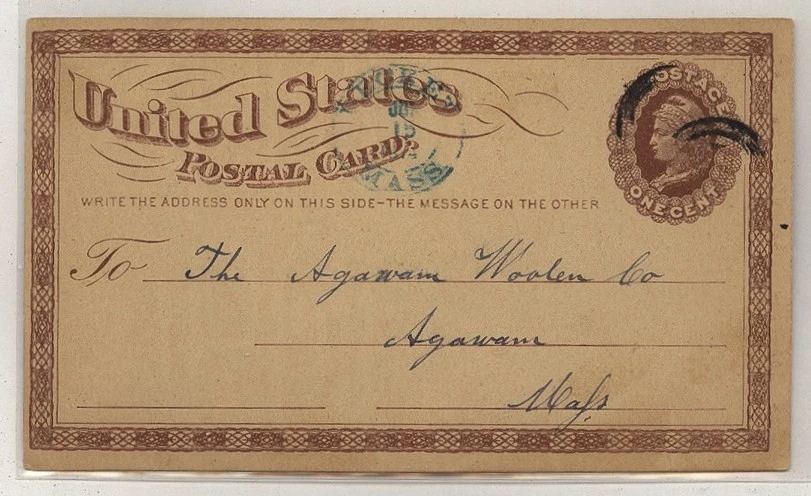 United States
POSTAL CARD.
WRITE THE ADDRESS ONLY ON THIS SIDE-THE MESSAGE ON THE OTHER
POSTAGE
ONE CENT
MASS
To The Agawam Woolen Co
Agawam
Maſs